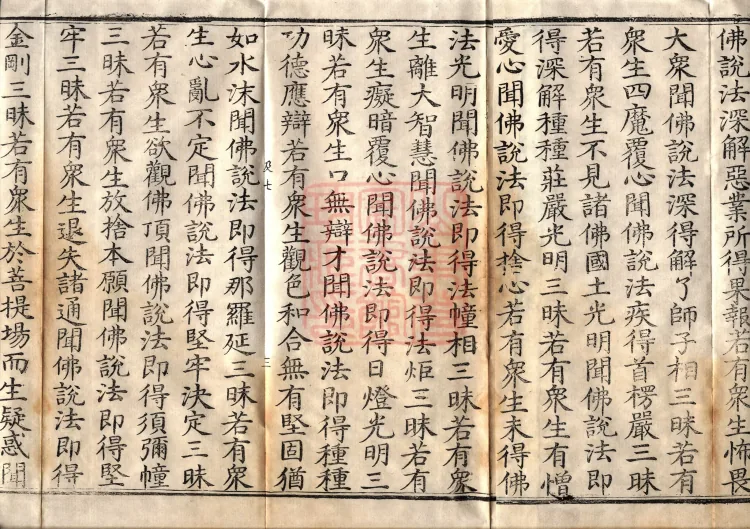 佛說法深解惡業所得果報若有衆生怖畏
大衆聞佛說法深得解了師子相三昧若有
衆生四魔覆心聞佛說法疾得首楞嚴三昧
若有衆生不見諸佛國土光明聞佛說法即
得深解種種莊嚴光明三昧若有衆生有憎
愛心聞佛說法即得捨心若有衆生未得佛
法光明聞佛說法即得法幢相三昧若有衆
生離大智慧聞佛說法即得法炬三昧若有
衆生癡暗覆心聞佛說法即得日燈光明三
昧若有衆生口無辯才聞佛說法即得種種
功德應辯若有衆生觀色和合無有堅固猶
七
三
如水沫聞佛說法即得那羅延三昧若有衆
生心亂不定聞佛說法即得堅牢決定三昧
若有衆生欲觀佛頂聞佛說法即得須彌幢
三昧若有衆生放捨本願聞佛說法即得堅
牢三昧若有衆生退失諸通聞佛說法即得
金剛三昧若有衆生於菩提場而生疑惑聞